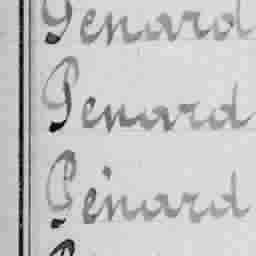 Penard
Penard
Penard